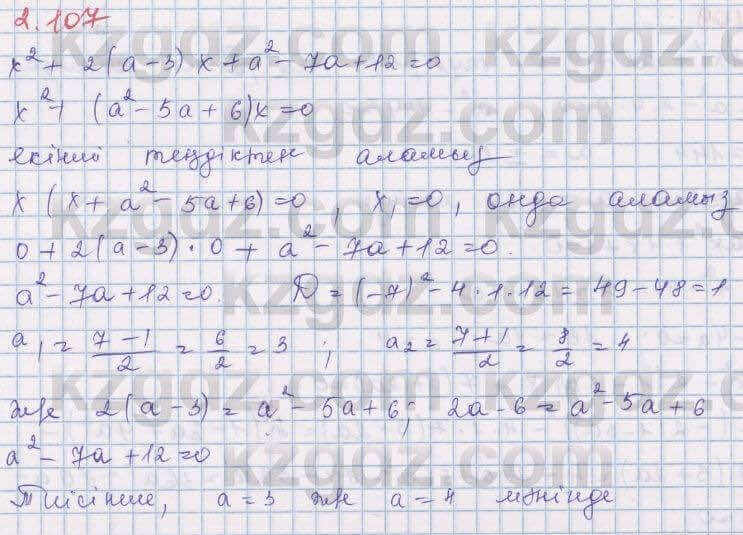 2.107
x² + 2(a-3)x + a² - 7a + 12 = 0
x² + (a² - 5a + 6)x = 0
екінші теңдіктен аламыз
x(x + a² - 5a + 6) = 0, x₁ = 0, онда аламыз
0 + 2(a-3)·0 + a² - 7a + 12 = 0.
a² - 7a + 12 = 0. D = (-7)² - 4·1·12 = 49 - 48 = 1
a₁ = (7-1)/2 = 6/2 = 3; a₂ = (7+1)/2 = 8/2 = 4
және 2(a-3) = a² - 5a + 6; 2a - 6 = a² - 5a + 6
a² - 7a + 12 = 0
Тиісінше, a = 3 және a = 4 мәнінде
kzgdz.com